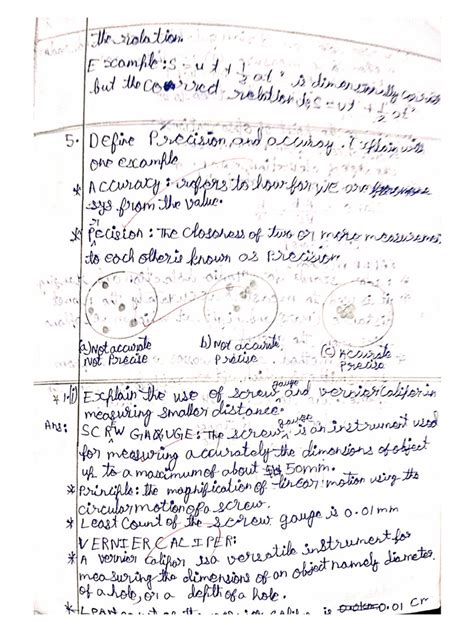 the relation.
Example: S = ut + 1/2 at² is dimensionally
but the relation is S = ut + 1/2 at²
5. Define Precision, and accuray. Explain with
one example
* Accuracy: refers to how far we are
sys from the value.
* Pecision: The closeness of two or more measurement
to each other is known as Precision
(a) Not accurate
Not Precise
b) Not accurate
Precise
(c) Accurate
Precise
1.(i) Explain the use of screw gauge and vernier califer in
measuring smaller distance.
Ans: SCRW GAUGE: The screw gauge is an instrument used
for measuring accurately the dimensions of object
up to a maximum of about 50mm.
* Principle: the magnification of linear motion using the
circular motion of a screw.
* Least Count of the screw gauge is 0.01mm
VERNIER CALIPER:
* A vernier califer is a versatile instrument for
measuring the dimensions of an object namely diameter
of a hole, or a depth of a hole.
* is 0.01 cm